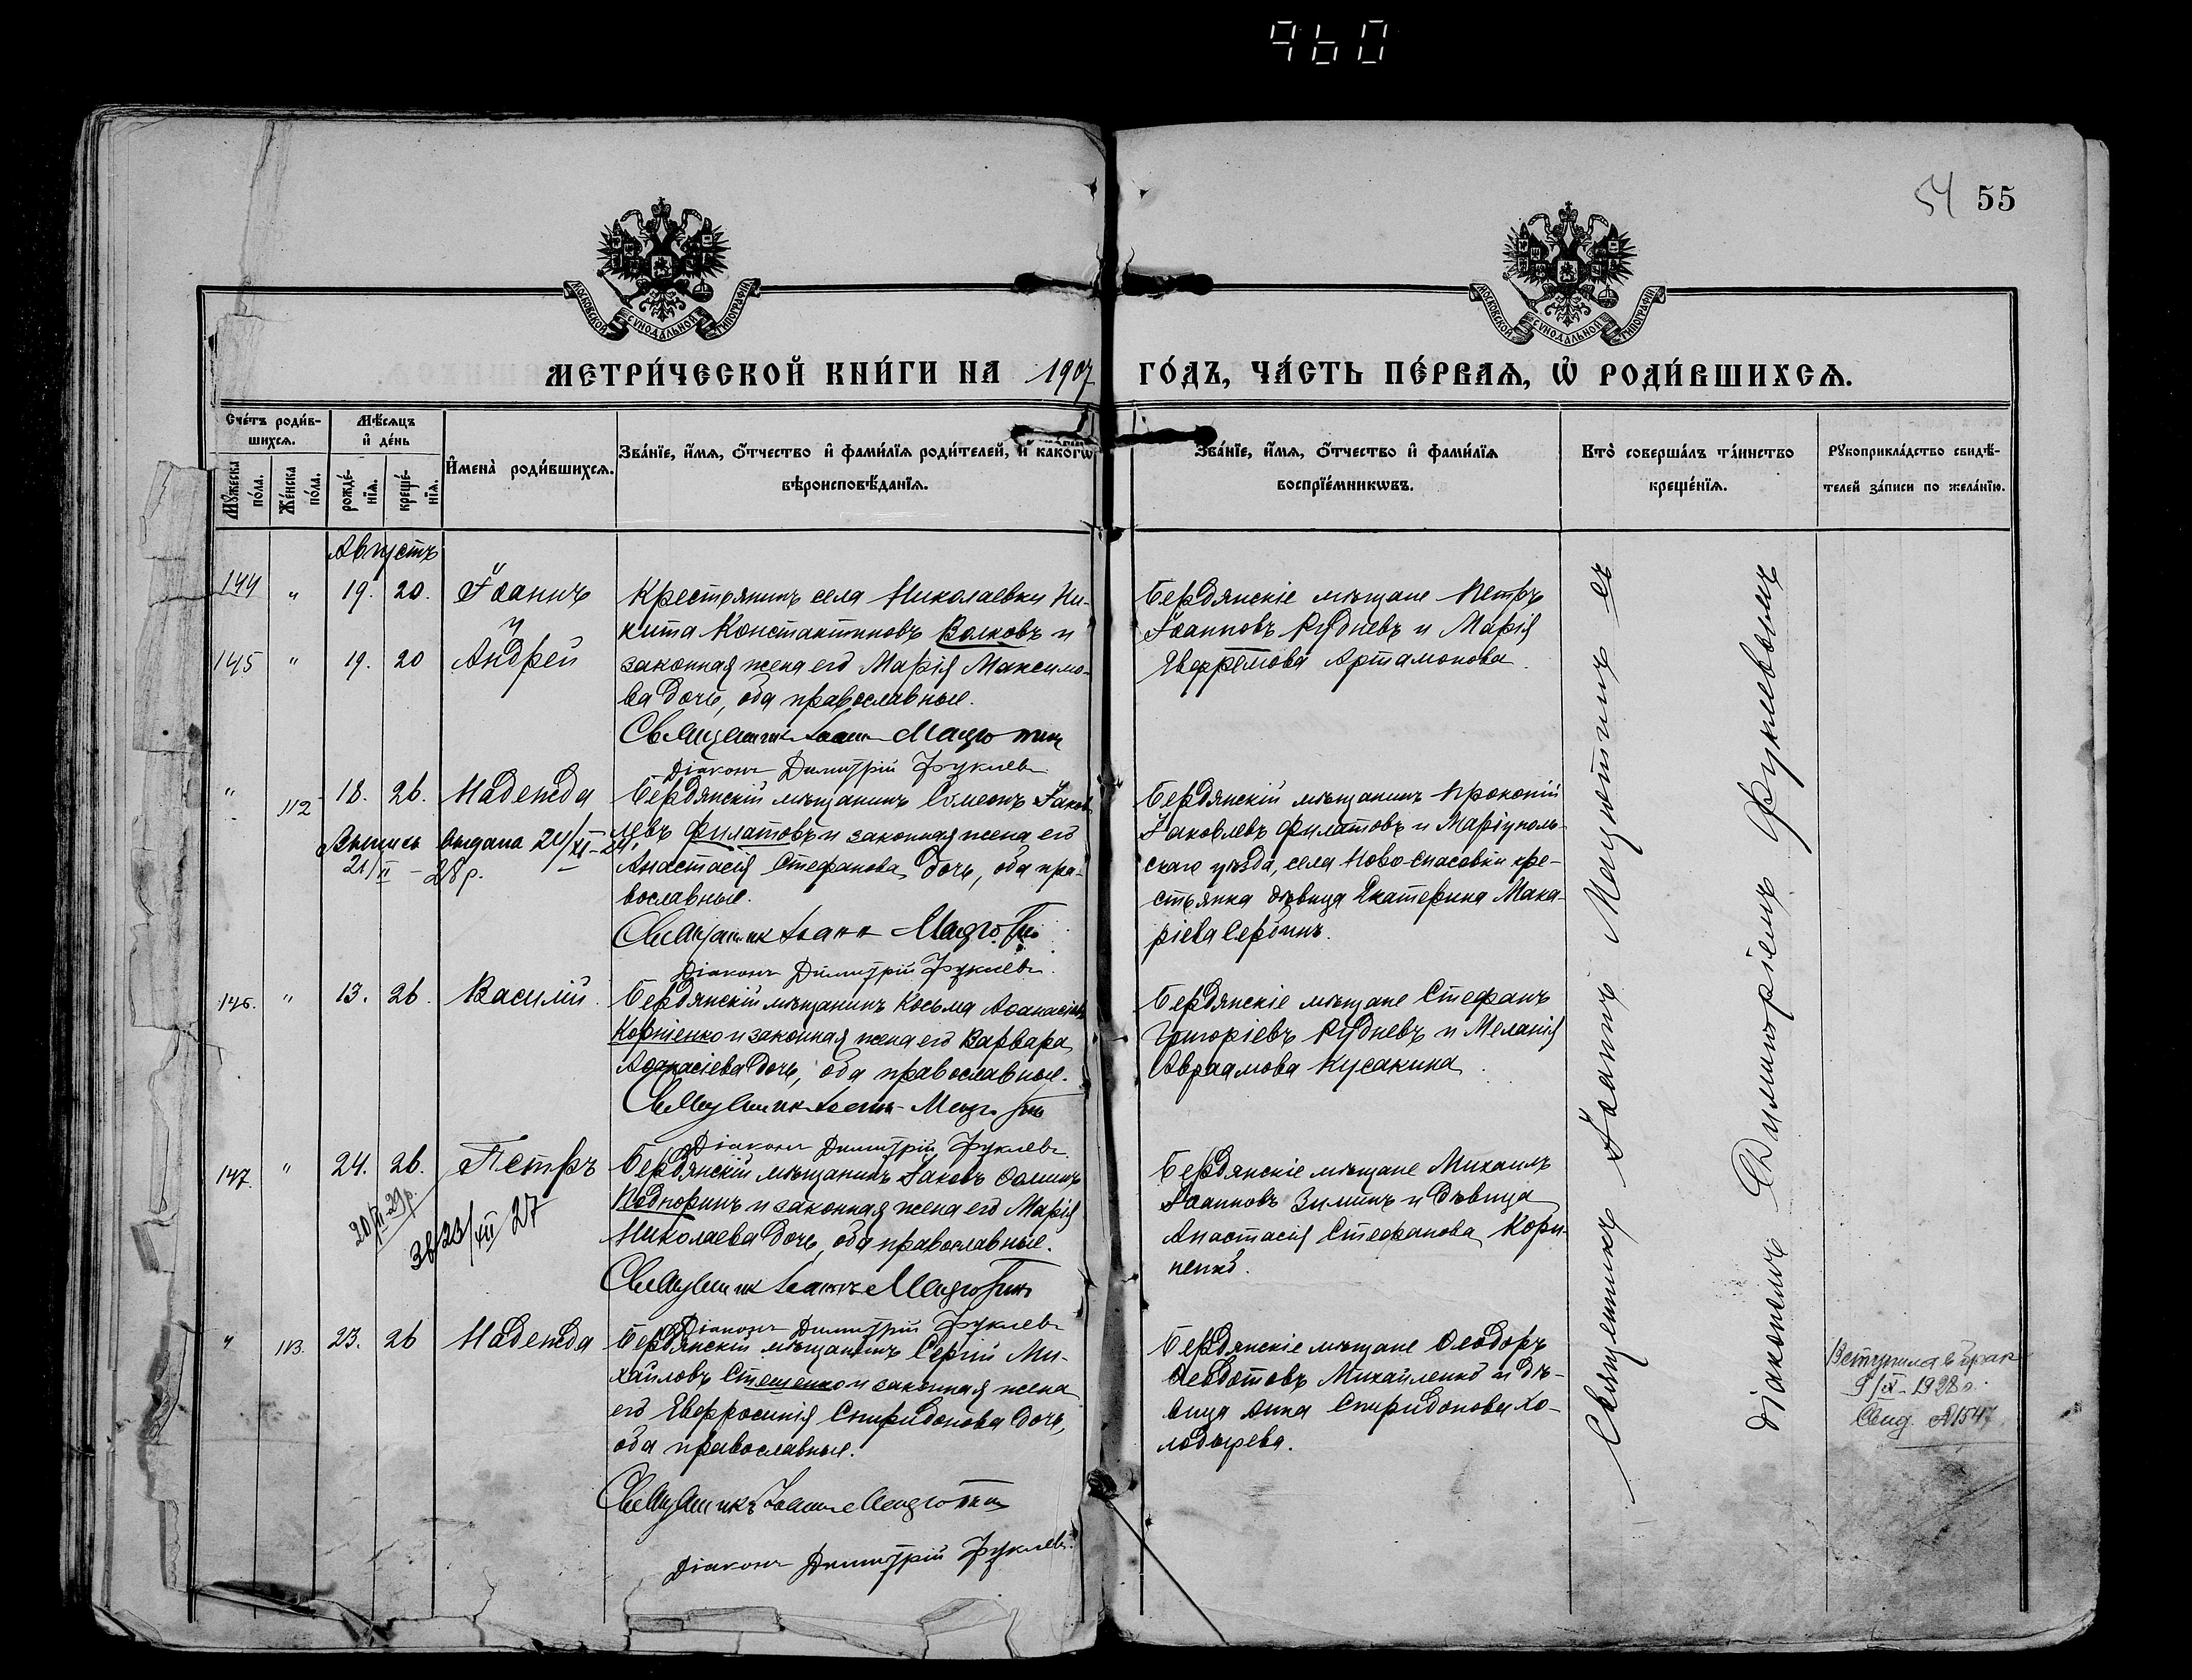 960
54 55
МОСКОВСКОЙ СѴНОДАЛЬНОЙ ТИПОГРАФІИ
МОСКОВСКОЙ СѴНОДАЛЬНОЙ ТИПОГРАФІИ
МЕТРИ́ЧЕСКОЙ КНИ́ГИ НА 1907 ГО́ДЪ, ЧА́СТЬ ПЕ́РВАѦ, Ѡ҆ РОДИ́ВШИХСѦ.
Сче́тъ роди́в-
шихсѧ.
Мѣ́сѧцъ
и҆ де́нь
Мꙋ́жеска
по́ла.
Же́нска
по́ла.
рожде́-
нїѧ.
креще́-
нїѧ.
И҆мена̀ роди́вшихсѧ.
Зва́нїе, и҆́мѧ, ѻ҆́тчество и҆ фами́лїѧ роди́телей, и҆ како́гѡ
вѣроисповѣ́данїѧ.
Зва́нїе, и҆́мѧ, ѻ҆́тчество и҆ фами́лїѧ
воспрїе́мникѡвъ.
Кто̀ соверша́лъ та́инство
креще́нїѧ.
Рꙋкоприкла́дство свидѣ́-
телей за́писи по жела́нїю.
Августъ
144 " 19. 20. Іоаннъ
и
145 " 19. 20 Андрей
Крестьянинъ села Николаевки Ни-
кита Константиновъ Волковъ и
законная жена его Марія Максимо-
ва дочь, оба православные.
Священникъ Іоаннъ Мацютин
Діаконъ Димитрій Фуклевъ
Бердянскіе мѣщане Петръ
Іоанновъ Рудневъ и Марія
Евфремова Артамонова.
" 112 18. 26. Надежда
Выпись выдана 24/XI-24.
21/II - 28 р.
Бердянскій мѣщанинъ Сѵмеонъ Іаков-
левъ Филатовъ и законная жена его
Анастасія Стефанова дочь, оба пра-
вославные.
Священник Іоанн Мацютин
Діаконъ Димитрій Фуклевъ.
Бердянскій мѣщанинъ Прокопій
Іаковлевъ Филатовъ и Маріуполь-
скаго уѣзда, села Ново-Спасовки кре-
стьянка дѣвица Екатерина Мака-
ріева Сербинъ.
146. " 13. 26. Василій.
Бердянскій мѣщанинъ Косьма Аѳанасіевъ
Корніенко и законная жена его Варвара
Аѳанасіева дочь, оба православные.
Священник Іоанн Мацютин
Діаконъ Димитрій Фуклевъ.
Бердянскіе мѣщане Стефанъ
Григоріевъ Рудневъ и Меланія
Авраамова Кусакина.
147. " 24. 26. Петръ
20/II-29 р.
23/XII 27
Бердянскій мѣщанинъ Іаковъ Ѳоминъ
Подпоринъ и законная жена его Марія
Николаева дочь, оба православные.
Священник Іоаннъ Мацютин
Діаконъ Димитрій Фуклевъ
Бердянскіе мѣщане Михаилъ
Іоанновъ Зиминъ и дѣвица
Анастасія Стефанова Кори-
ненко.
" 113. 23. 26 Надежда
Бердянскій мѣщанинъ Сергій Ми-
хайловъ Стешенко и законная жена
его Евфросинія Спиридонова дочь,
оба православные.
Священникъ Іоанн Мацютин
Діаконъ Димитрій Фуклевъ.
Бердянскіе мѣщане Ѳеодоръ
Михайленко и дѣ-
вица Анна Спиридонова Хо-
лодырева.
Священникъ Іоаннъ Мацютинъ съ
діакономъ Димитріемъ Фуклевымъ
Вступила в брак
9/IX-1928 г.
Свид. №1547